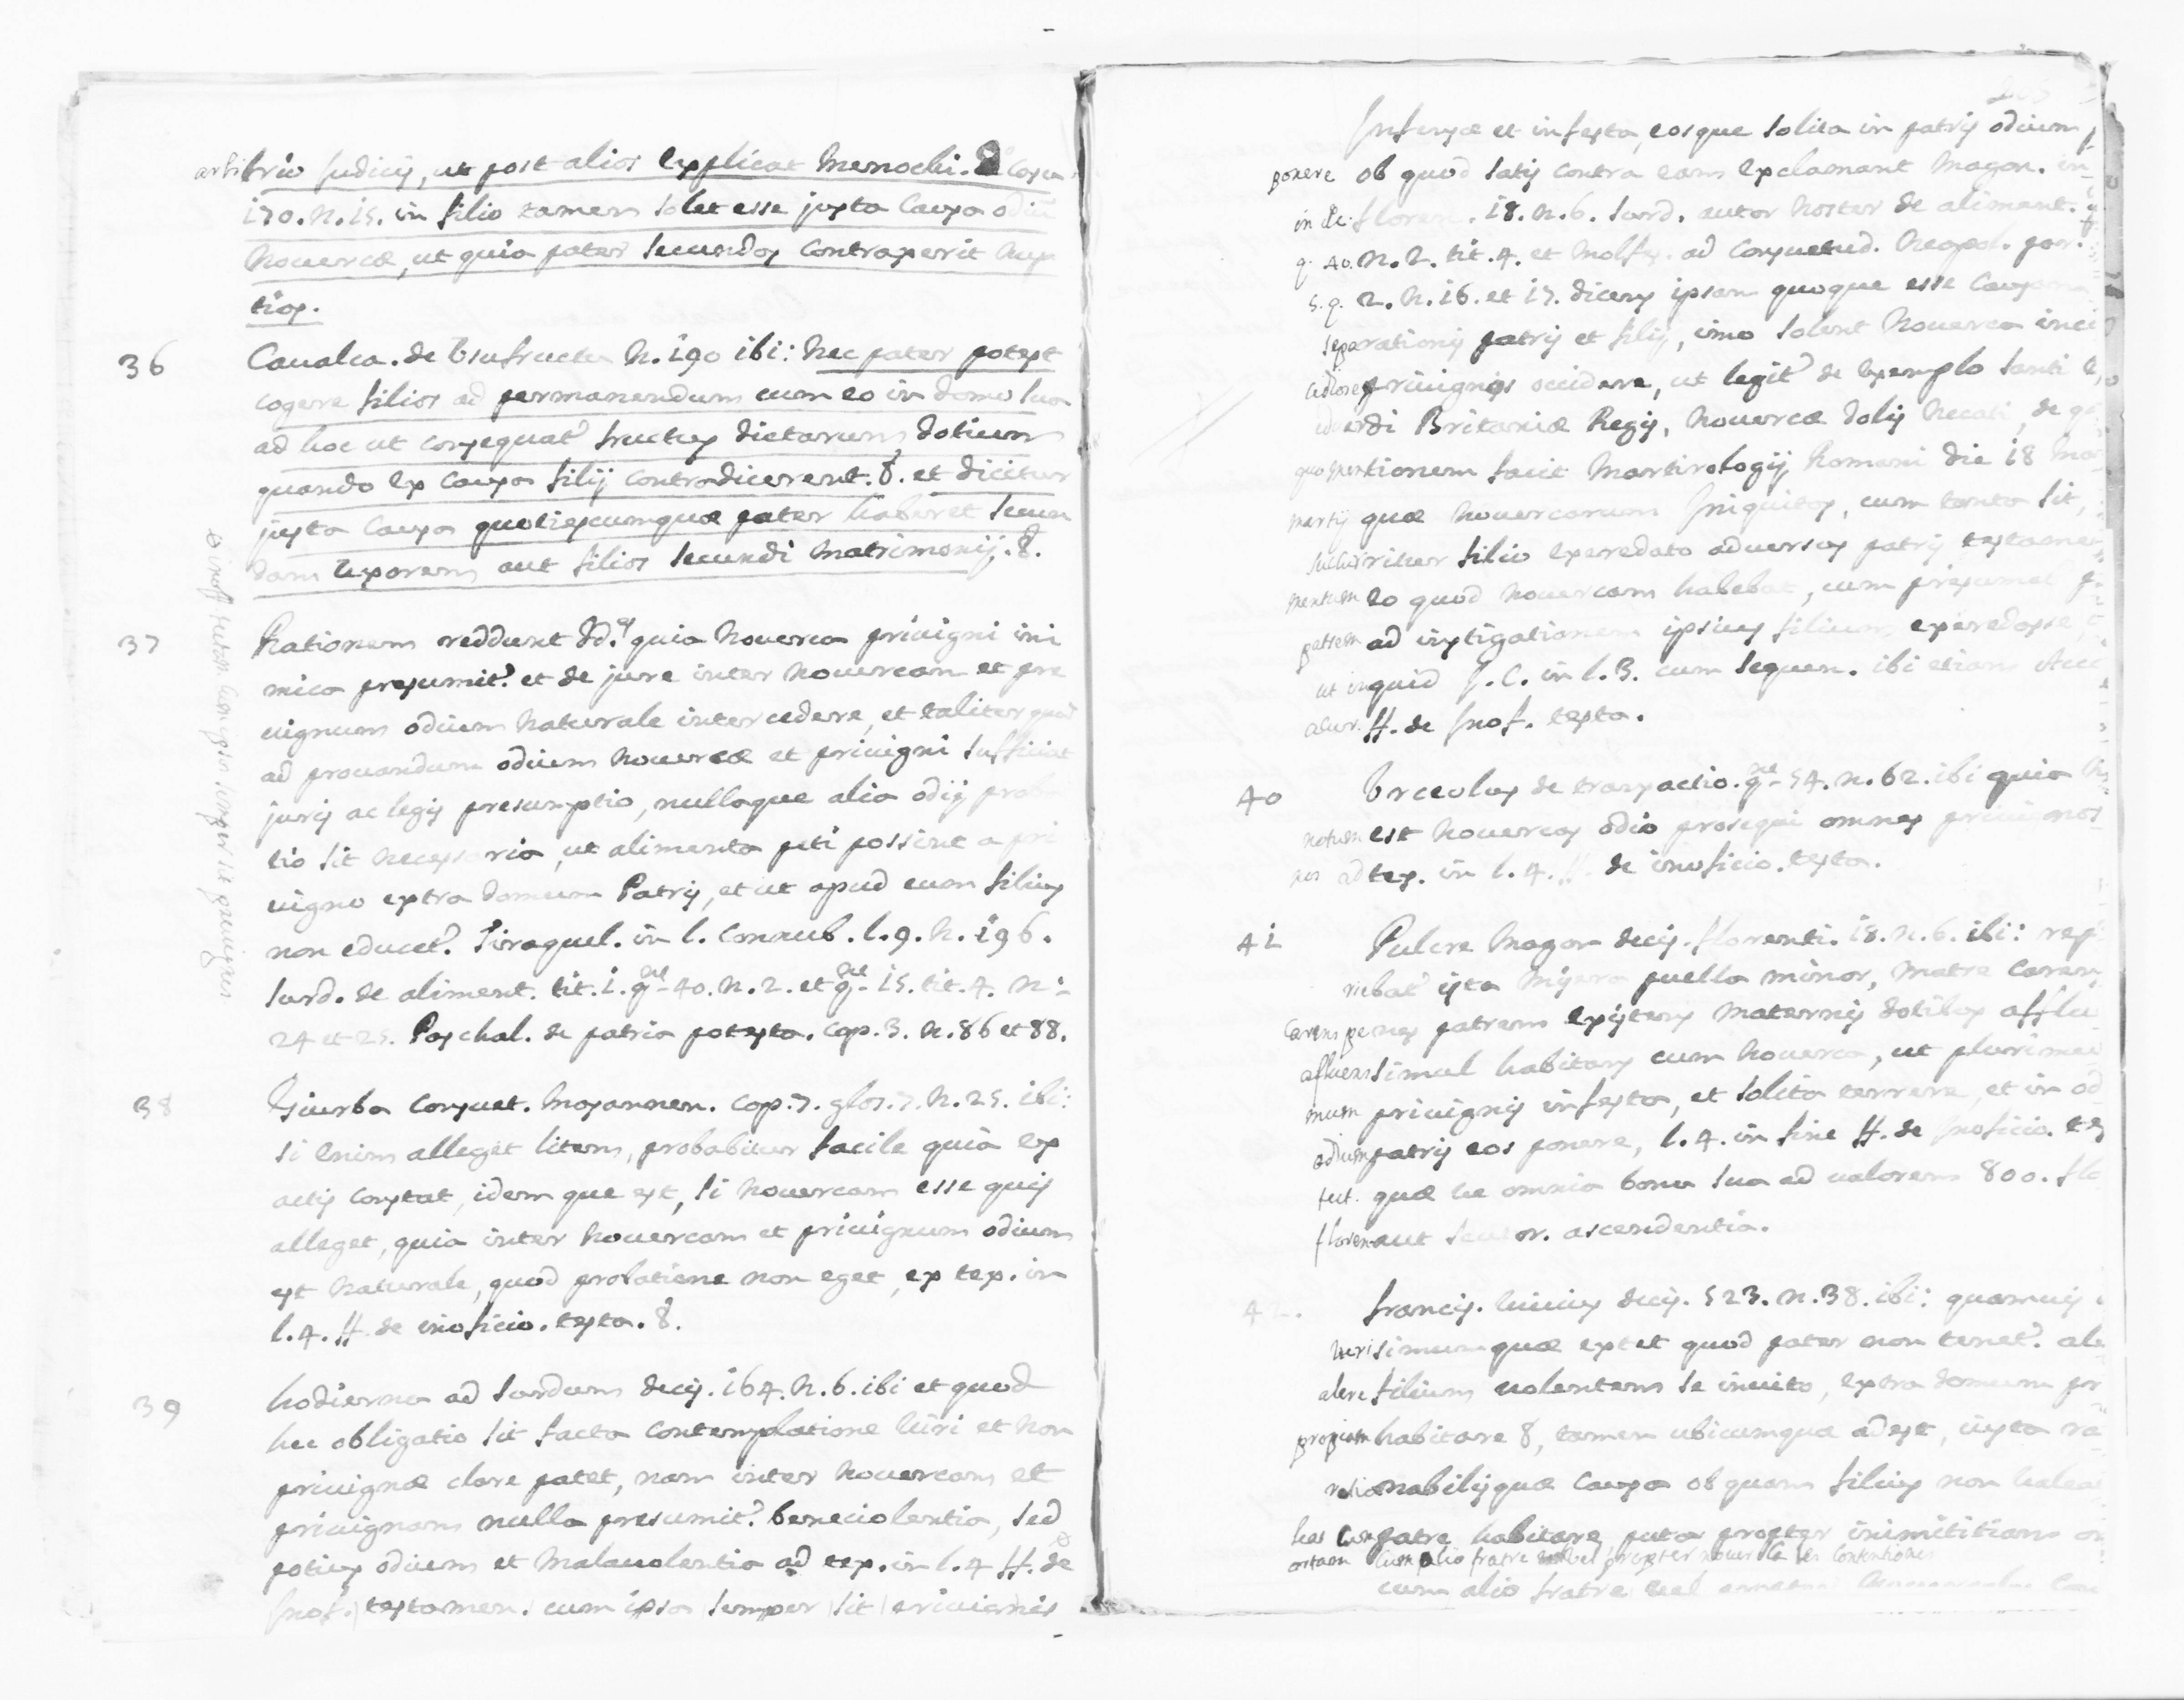 arbitrio Judicij, ut post alios explicat Menochi. 8. Casu
170. n. 15. in filio tamen solet esse justa causa odiu
novercæ, ut quia pater secundas contraxerit nup
tias.
36 Caualca. de Usufructu n. 190 ibi: nec pater potest
cogere filios ad permanendum cum eo in domo sua
ad hoc ut consequat.r fructus dictarum dotium
quando ex causa filij contradicerent. 8. et dicitur
justa causa quotiescumque pater haberet secun
dam uxorem aut filios secundi matrimonij. 8.
37 Rationem reddunt dd. quia noverca privigni ini
mica presumit.r et de jure inter novercam et pri
vignum odium naturale intercedere, et taliter quod
ad provandum odium novercæ et privigni sufficiat
juris ac legis presumptio, nullaque alia odij proba
tio sit necessaria, ut alimenta peti possint a pri
vigno extra domum Patris, et ut apud eum filius
non educet.r Tiraquel. in l. connub. l. 9. n. 196.
Surd. de aliment. tit. 1. q. 40. n. 2. et q. 15. tit. 4. n.
24 et 25. Paschal. de patria potesta. cap. 3. n. 86 et 88.
38 Giurba consuet. Mesannen. cap. 7. glos. 7. n. 25. ibi:
si enim alleget litem, probabitur facile quia ex
actis constat, idem que est, si novercam esse quis
alleget, quia inter novercam et privignum odium
est naturale, quod probatione non eget, ex tex. in
l. 4. ff. de inoficio. testa. 8.
39 hodierna ad Surdum decis. 164. n. 6. ibi et quod
hec obligatio sit facta contemplatione viri et non
privignæ clare patet, nam inter novercam et
privignam nulla presumit.r beneciolentia, sed
potius odium et malavolentia ad tex. in l. 4 ff. de
Inof. testamen. cum ipsa semper sit privignis
Infensa et infesta, eosque solita in patris odium
ponere ob quod satis contra eam exclamant Magon.
in de floren. 18. n. 6. Surd. autor noster de aliment.
q. 40. n. 2. tit. 4. et Molfes. ad consuetud. Neapol. par.
5. q. 2. n. 16. et 17. dicens ipsam quoque esse causam
separationis patris et filij, imo solent noverca
privignos occidere, ut legit.r de exemplo Santi
Britaniæ Regis, novercæ dolis necati, de
quo mentionem facit Martirologij Romani die 18
martij quæ novercarum Iniquitas, cum tanta sit,
filio exeredato adversus patris testamen
mentum eo quod novercam habebat, cum presumat
patrem ad instigationem ipsius filium exeredasse
ut inquid J. C. in l. 3. cum sequen. ibi etiam
ff. de Inof. testa.
40 Urceolus de transactio. q. 54. n. 62. ibi quia
notum est novercas odio prosequi omnes privignos
ad tex. in l. 4. ff. de inoficio. testa.
41 Pulcre Magon decis. florenti. 18. n. 6. ibi: repe
riebat.r ista misera puella minor, matre caren
carens penes patrem existens maternis dotibus afflu
afluens simul habitans cum noverca, ut plurimu
mum privignis infesta, et solita terrere, et in od
odium patris eos ponere, l. 4. in fine ff. de Inoficio. tes
test. quæ hæ omnia bona sua ad valorem 800. flo
floren aut ascendentia.
42. Francis. Vivius decis. 523. n. 38. ibi: quamvis
verisimumque extet quod pater non tenet.r ale
alere filium volentem se invito, extra domum pr
propiam habitare 8, tamen ubicumque adest, iusta ra
rationabilisque causa ob quam filius non habea
cum patre habitare puta propter inimititiam
cum alio fratre vel propter contentiones
cum alio fratre vel